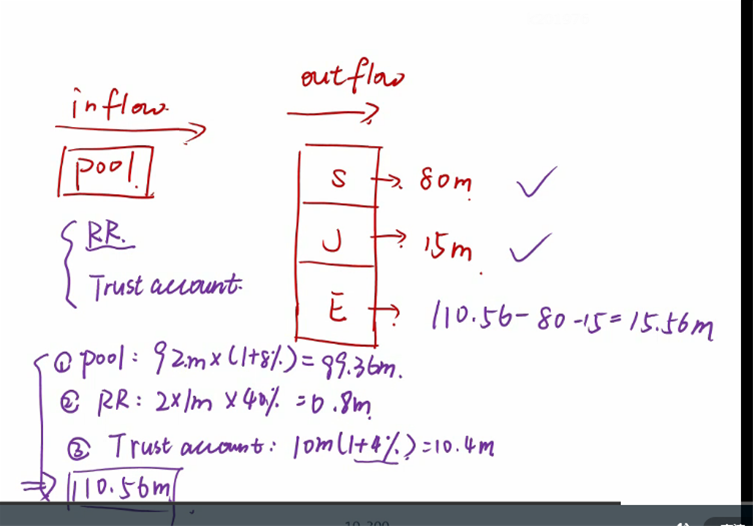 inflow
outflow
pool
S → 80m ✓
RR.
J → 15m ✓
Trust account.
E → 110.56-80-15=15.56m
① pool: 92m×(1+8%)=99.36m.
② RR: 2×1m×40%=0.8m
③ Trust account: 10m(1+4%)=10.4m
⇒ 110.56m